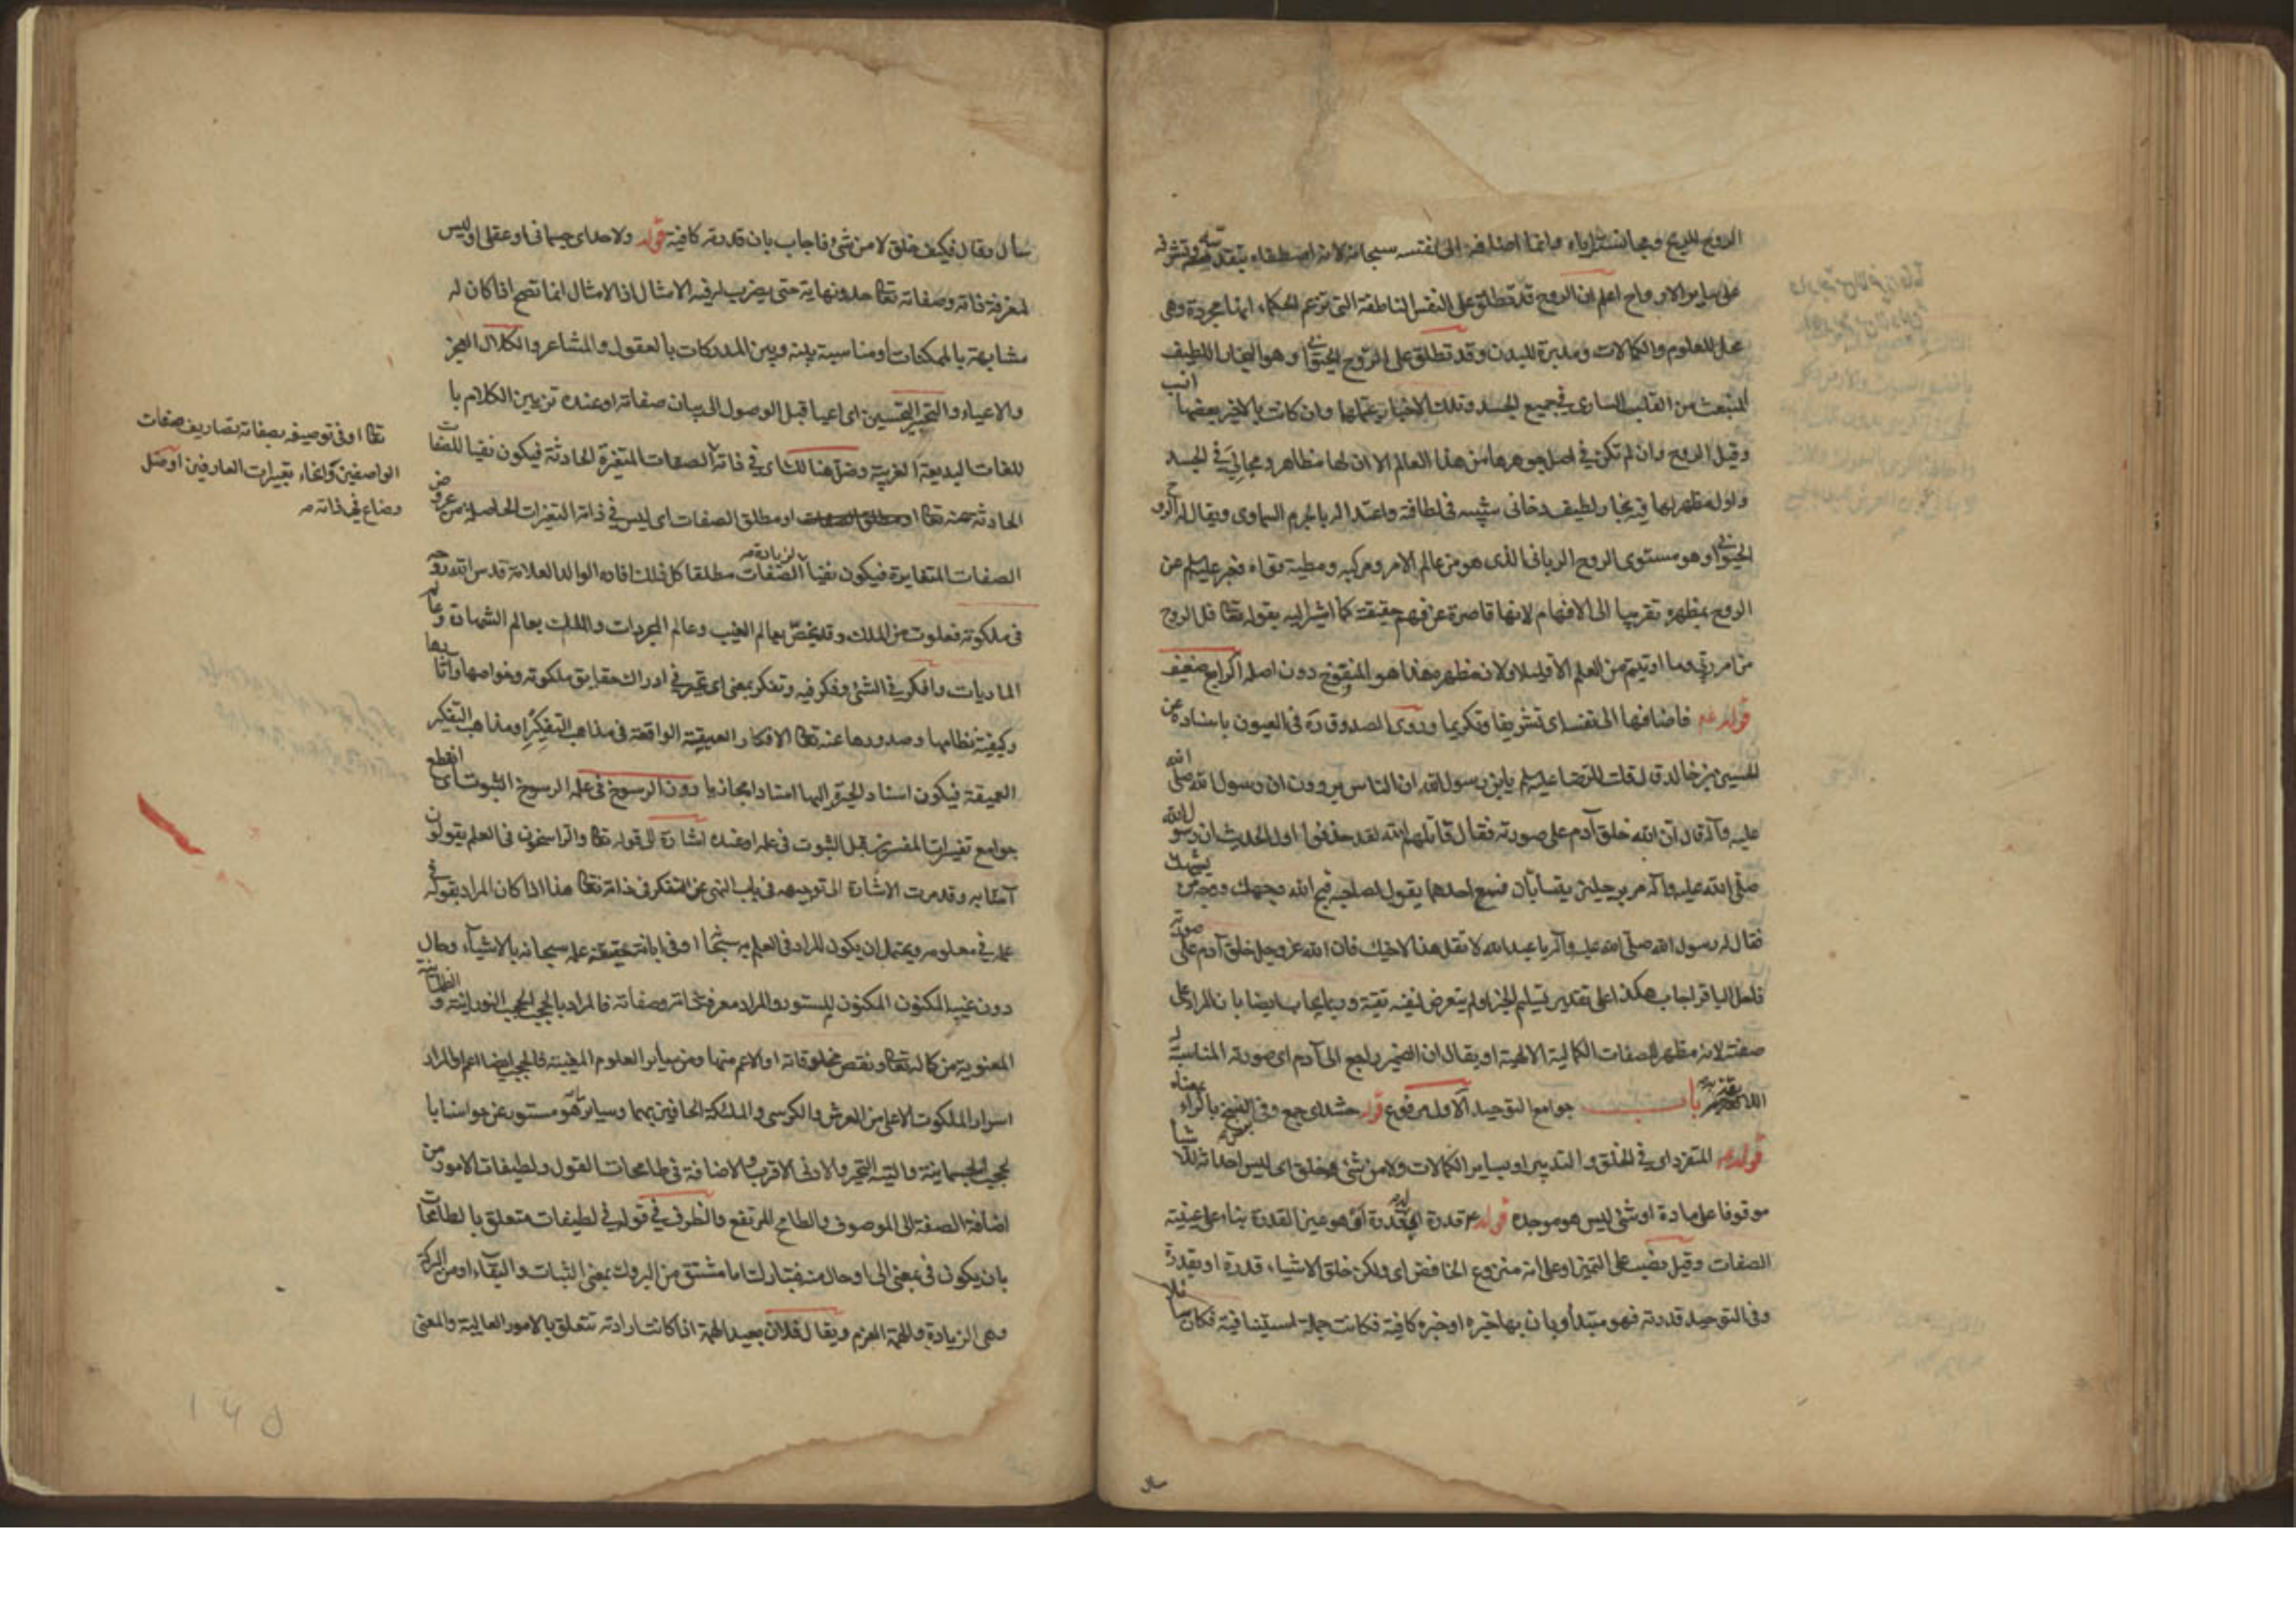 الروح للريح ومجانستها اياه وانما اضافه الى نفسه سبحانه لانه اصطفاه بتقدسه وتشرفه
على ساير الارواح اعلم ان الروح قد تطلق على النفس الناطقة التي تزعم الحكماء انها مجردة وهي
محل للعلوم والكمالات ومدبرة للبدن وقد تطلق على الروح الحيواني وهو البخار اللطيف
المنبعث من القلب الساري في جميع الجسد وتلك الاخبار يحتملهما وان كانت بالاخير بعضها انسب
وقيل الروح وان لم تكن في اصل جوهرها من هذا العالم الا ان لها مظاهر ومجالي في الجسد
واول مظهر لها فيه بخار لطيف دخاني شبيه في لطافته واعتداله بالجرم السماوي ويقال له الروح
الحيواني وهو مستوى الروح الرباني الذي هو من عالم الامر ومركبه ومطية قواه فعبر عليه السلم عن
الروح بمظهره تقريبا الى الافهام لانها قاصرة عن فهم حقيقته كما اشير اليه بقوله تعالى قل الروح
من امر ربي وما اوتيتم من العلم الا قليلا ولان مظهره هذا هو المنفوخ دون اصله الرابع ضعيف
قوله عم فاضافها الى نفسه اي تشريفا وتكريما وروى الصدوق ره في العيون باسناده عن
الحسين بن خالد ق ل قلت للرضا عليه السلم يابن رسول الله ان الناس يروون ان رسول الله صلى الله
عليه وآله قال ان الله خلق آدم على صورته فقال قاتلهم الله لقد حذفوا اول الحديث ان رسول الله
صلى الله عليه وآله مر برجلين يتسابان فسمع احدهما يقول لصاحبه قبح الله وجهك ووجه من يشبهك
فقال له رسول الله صلى الله عليه وآله يا عبد الله لا تقل هذا لاخيك فان الله عز وجل خلق آدم على صورته
فلعل الباقر اجاب هكذا على تقدير تسليم الخبر ولم يتعرض لنفيه تقية وربما يجاب ايضا بان المراد على
صفته لانه مظهر للصفات الكمالية الالهية او يقال ان الضمير راجع الى آدم اي صورته المناسبة
باب جوامع التوحيد الاول مرفوع قوله حشد اي جمع وفي النسخ بالراء بمعناه
قوله عم المتفرد اي في الخلق والتدبير او بساير الكمالات ولا من شئ خلق اي ليس احداثه للاشياء
موقوفا على مادة او شئ ليس هو موجده قوله عم قدرة اي له قدرة او هو عين القدرة بناء على عينية
الصفات وقيل نصب على التميز او على انه منزوع الخافض اي ولكن خلق الاشياء قدرة او بقدرة
وفي التوحيد قدرته فهو مبتدأ وبان بها خبره او خبره كافية فكانت جملة استينافية فكان سائلا
سأل وقال فكيف خلق لا من شئ فاجاب بان قدرته كافية قوله ولا حد اي جسماني او عقلي او ليس
لمعرفة ذاته وصفاته تعالى حد ونهاية حتى يضرب له فيه الامثال اذ الامثال انما تصح اذا كان له
مشابهة بالممكنات او مناسبة بينه وبين المدركات بالعقول والمشاعر والكلال العجز
والاعياء والتحبير التحسين اي اعيا قبل الوصول الى بيان صفاته او عنده تزيين الكلام با
للغات البديعة الغريبة وضل هنالك اي في ذاته الصفات المتغيرة الحادثة فيكون نفيا للصفات
الحادثة عنه تعالى او مطلق الصفات اي ليس في ذاته التغيرات الحاصلة من عروض
الصفات المتغايرة فيكون نفيا لزيادة الصفات مطلقا كل ذلك افاده الوالد العلامة قدس الله روحه
في ملكوته فعلوت من الملك وقد يخص بعالم الغيب وعالم المجردات والملك بعالم الشهادة وعالم
الماديات وافكر في الشئ وفكر فيه وتفكر بمعنى اي تحير في ادراك حقايق ملكوته وخواصها وآثارها
وكيفية نظامها وصدورها عنه تعالى الافكار العميقة الواقعة في مذاهب التفكير او مذاهب التفكير
العميقة فيكون اسناد الحيرة اليها اسنادا مجازيا دون الرسوخ في علمه الرسوخ الثبوت اي انقطع
جوامع تفسيرات المفسرين قبل الثبوت في علمه او عنده اشارة الى قوله تعالى والراسخون في العلم يقولون
آمنا به وقد مرت الاشارة الى توجيهه في باب النهي عن التفكر في ذاته تعالى هذا اذا كان المراد بقوله في
علمه في معلومه ويحتمل ان يكون المراد في العلم به سبحانه او في ابانة حقيقة علمه سبحانه بالاشياء وحال
دون غيبه المكنون المكنون المستور والمراد معرفة ذاته وصفاته فالمراد بالحجب الحجب النورانية والظلمانية
المعنوية من كماله تعالى ونقص مخلوقاته او الاعم منها ومن ساير العلوم المغيبة فالحجب ايضا اعم او المراد
اسرار الملكوت الاعلى من العرش والكرسي والملئكة الحافين بهما وساير ما هو مستور عن حواسنا با
لحجب الجسمانية والتيه التحير والادنى الاقرب والاضافة في طامحات العقول ولطيفات الامور من
اضافة الصفة الى الموصوف والطامح المرتفع والظرف في قوله في لطيفات متعلق بالطامحات
بان يكون في بمعنى الى او حال منه فتبارك اما مشتق من البروك بمعنى الثبات والبقاء او من البركة
وهي الزيادة والهمة العزم ويقال فلان بعيد الهمة اذا كانت ارادته تتعلق بالامور العالية والمعنى
تعالى او في توصيفه بصفاته تصاريف صفات
الواصفين وانحاء تعبيرات العارفين او ضل
وضاع في ذاته
١٤٥